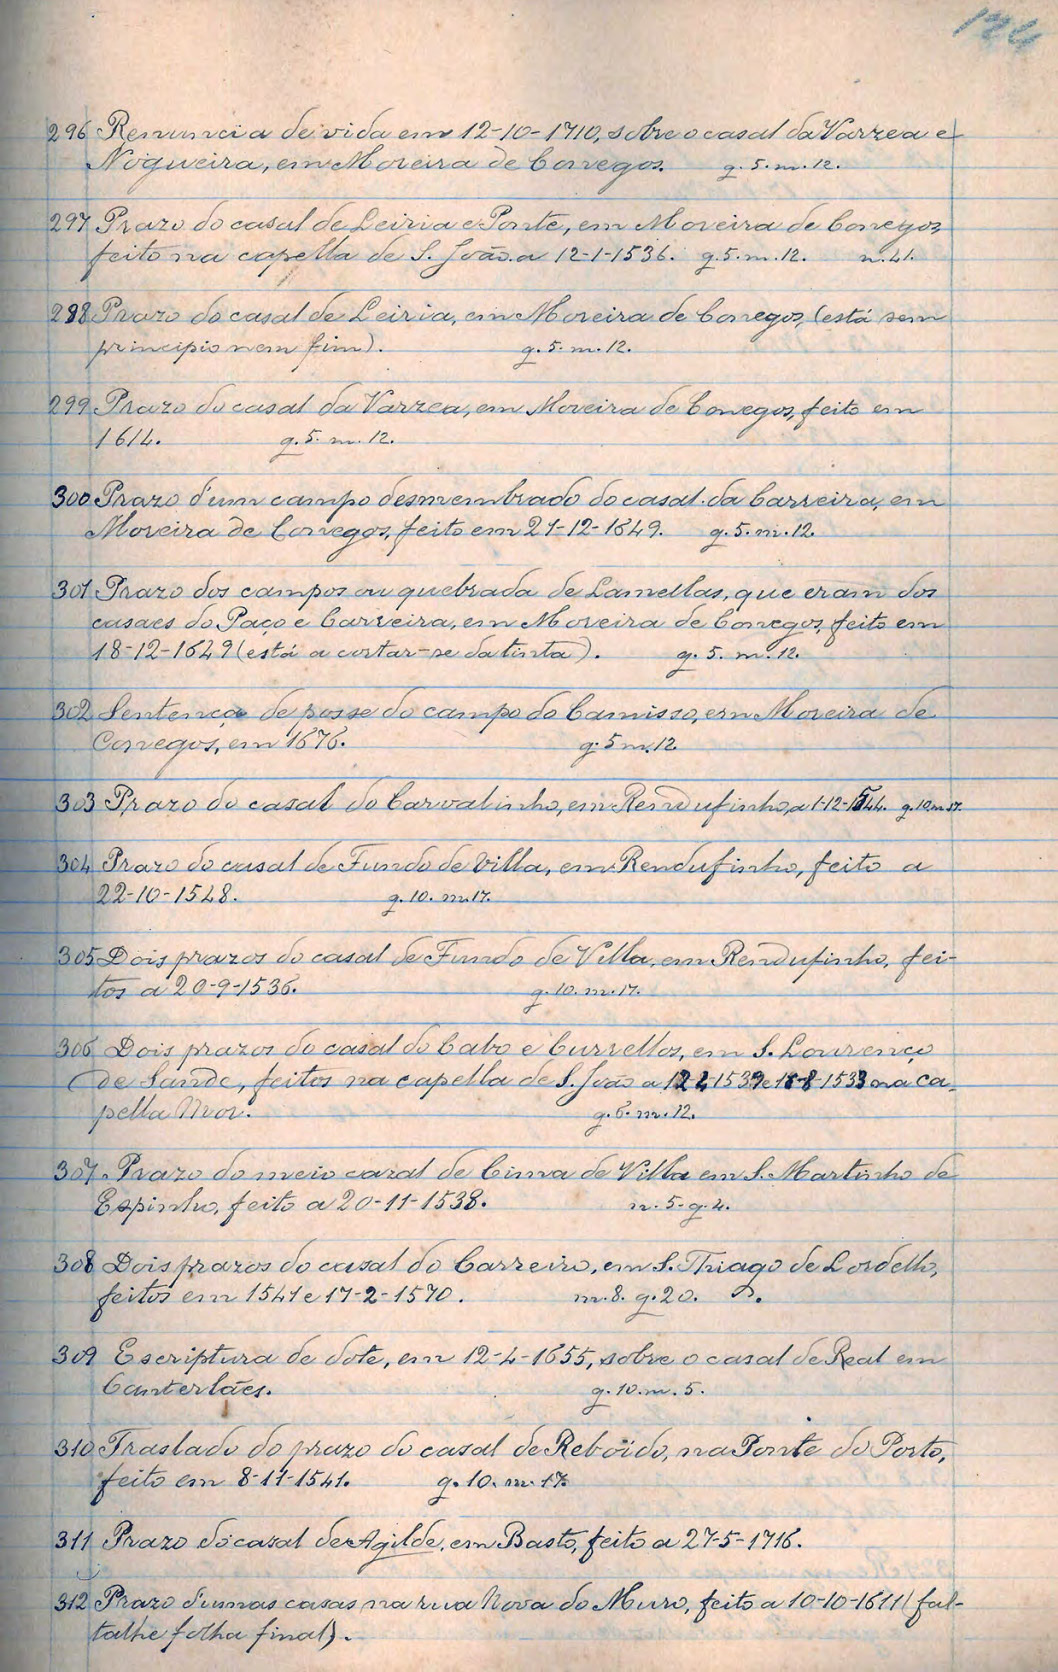 124
296 Renuncia de vida em 12-10-1710, sobre o casal da Varzea e
Nogueira, em Moreira de Conegos. g. 5. m. 12.
297 Prazo do casal de Leiria e Ponte, em Moreira de Conegos,
feito na capella de S. João a 12-1-1536. g. 5. m. 12. n. 41.
298 Prazo do casal de Leiria, em Moreira de Conegos, (está sem
principio nem fim). g. 5. m. 12.
299 Prazo do casal da Varzea, em Moreira de Conegos, feito em
1614. g. 5. m. 12.
300 Prazo d'um campo desmembrado do casal da Carreira, em
Moreira de Conegos, feito em 21-12-1649. g. 5. m. 12.
301 Prazo dos campos ou quebrada de Lamellas, que eram dos
casaes do Paço e Carreira, em Moreira de Conegos, feito em
18-12-1649 (está a cortar-se da tinta). g. 5. m. 12.
302 Sentença de posse do campo do Camisso, em Moreira de
Conegos, em 1676. g. 5 m. 12
303 Prazo do casal do Carvalinho, em Rendufinho, a 1-12-1544. g. 10. m. 17.
304 Prazo do casal de Fundo de Villa, em Rendufinho, feito a
22-10-1548. g. 10. m. 17.
305 Dois prazos do casal de Fundo de Villa, em Rendufinho, fei-
tos a 20-9-1536. g. 10. m. 17.
306 Dois prazos do casal do Cabo e Currellos, em S. Lourenço
de Sande, feitos na capella de S. João a 1539 e 1533 na ca-
pella Mor. g. 6. m. 12.
307. Prazo do meio cazal de Cima de Villa em S. Martinho de
Espinho, feito a 20-11-1538. m. 5. g. 4.
308 Dois prazos do casal do Carreiro, em S. Thiago de Lordello,
feitos em 1541 e 17-2-1570. m. 8. g. 20.
309 Escriptura de dote, em 12-4-1655, sobre o casal de Real em
Canterlães. g. 10. m. 5.
310 Traslado do prazo do casal de Reboïdo, na Ponte do Porto,
feito em 8-11-1541. g. 10. m. 17.
311 Prazo do cazal de Agilde, em Basto, feito a 27-5-1716.
312 Prazo d'umas casas na rua Nova do Muro, feito a 10-10-1611 (fal-
ta lhe folha final).